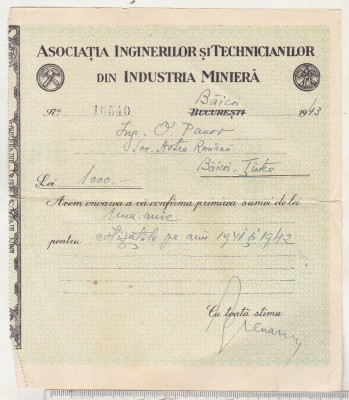 ASOCIAȚIA INGINERILOR ȘI TECHNICIANILOR
DIN INDUSTRIA MINIERĂ
Băicoi
No. 10540 BUCUREȘTI 1943
Ing. O. Panov
Soc. Astra Română
Băicoi - Țintea
Lei 1000.-
Avem onoarea a vă confirma primirea sumei de lei
Una mie
pentru cotizațiile pe anii 1941 și 1942
Cu toată stima